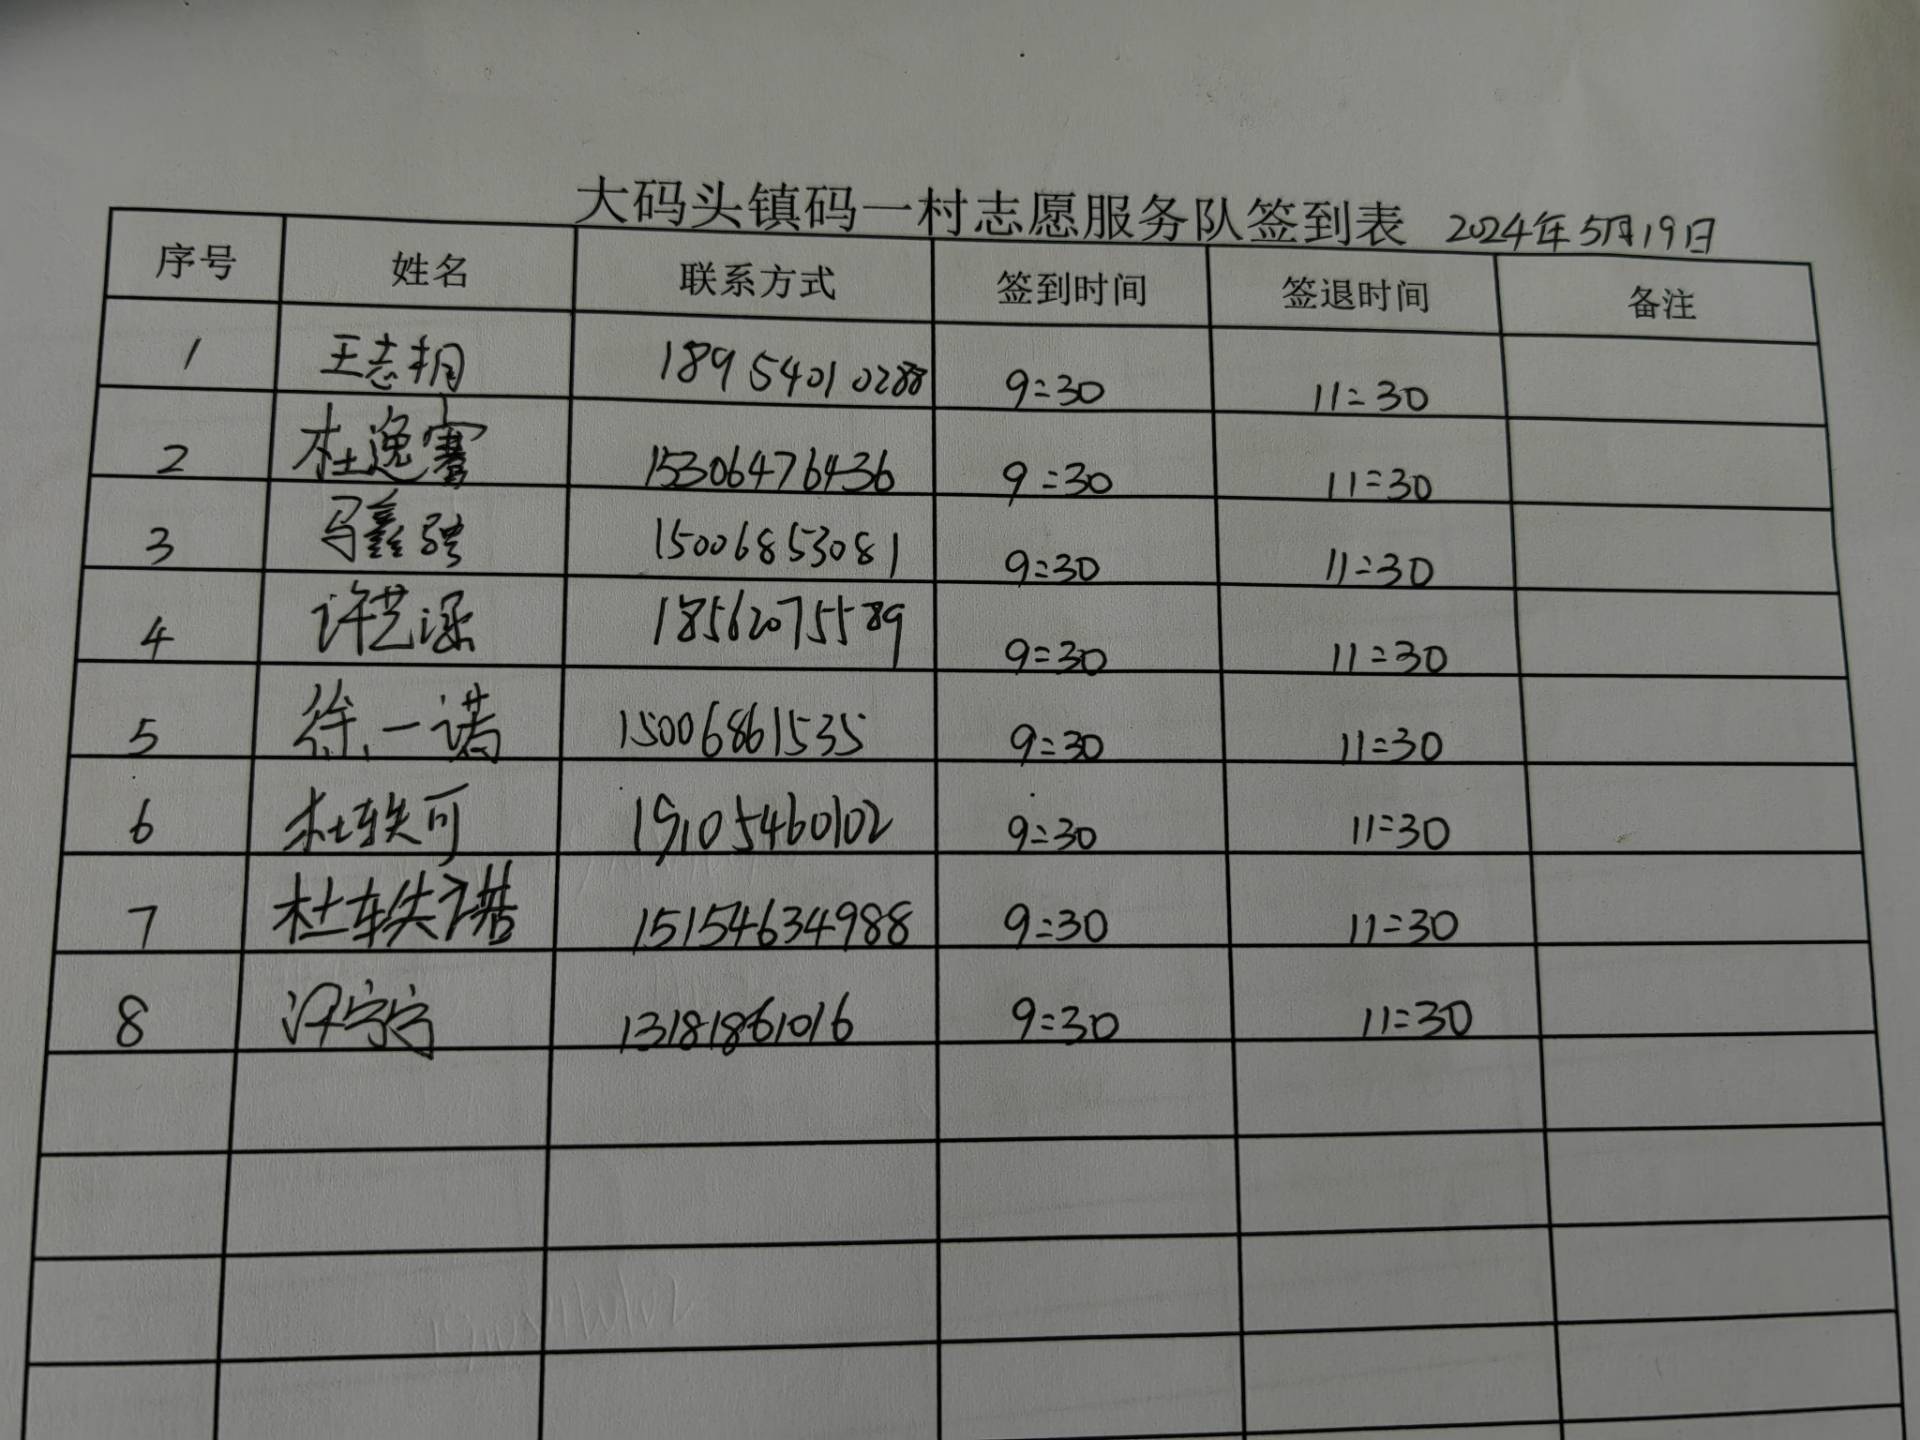 大码头镇码一村志愿服务队签到表 2024年5月19日
序号 姓名 联系方式 签到时间 签退时间 备注
1 王志 18954010288 9:30 11:30
2 杜逸骞 15306476436 9:30 11:30
3 马鑫骋 15006853081 9:30 11:30
4 许艺 18562075589 9:30 11:30
5 徐一诺 15006861535 9:30 11:30
6 杜轶可 19105460102 9:30 11:30
7 杜轶诺 15154634988 9:30 11:30
8 宁宁 13181861016 9:30 11:30